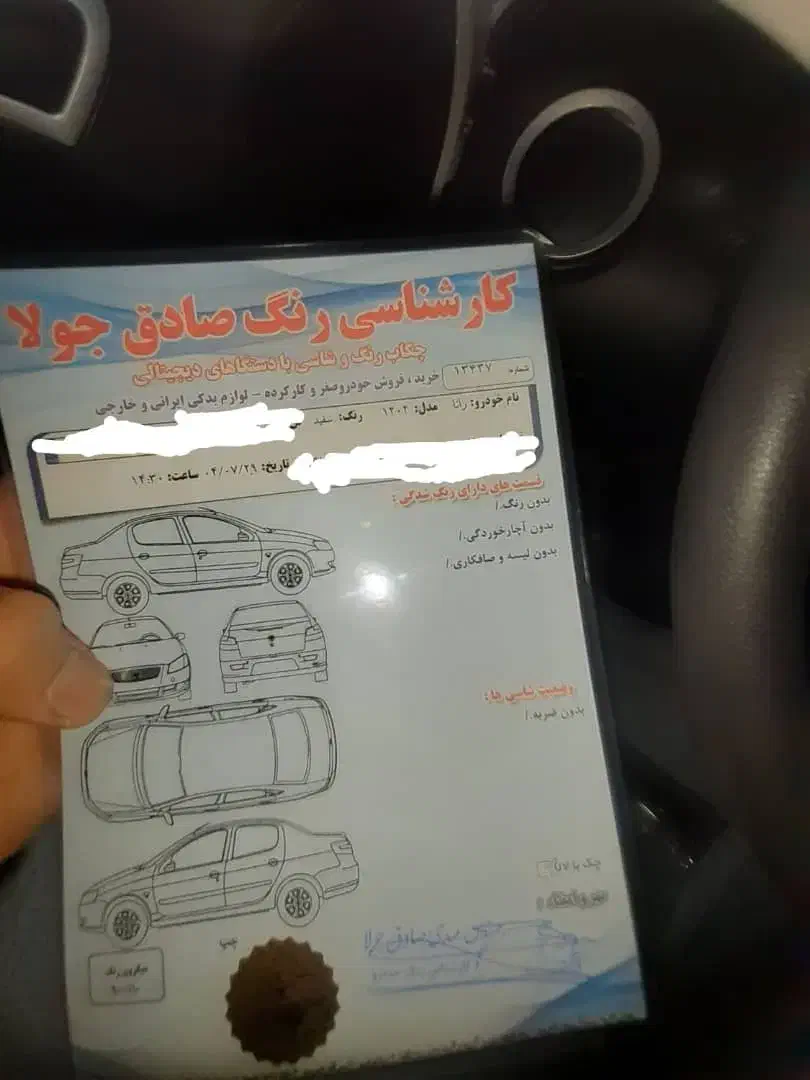 کارشناسی رنگ صادق جولا
چکاپ رنگ و شاسی با دستگاهای دیجیتالی
خرید، فروش خودرو صفر و کارکرده - لوازم یدکی ایرانی و خارجی
شماره: ۱۳۴۳۷
نام خودرو: رانا مدل: ۱۴۰۴ رنگ: سفید
تاریخ: ۰۴/۰۷/۲۹ ساعت: ۱۴:۳۰
قسمت های دارای رنگ شدگی:
بدون رنگ./
بدون آچارخوردگی./
بدون لیسه و صافکاری./
وضعیت شاسی ها:
بدون ضربه./
چک با لالا
مهر و امضاء:
صادق جولا
چپ
میکرون رنگ